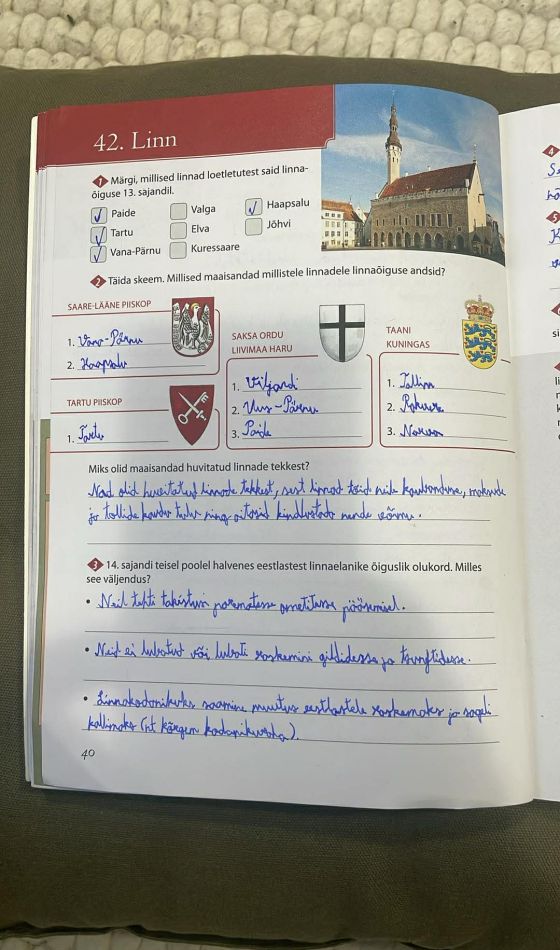 42. Linn
1 Märgi, millised linnad loetletutest said linna-
õiguse 13. sajandil.
✓ Paide
Valga
✓ Haapsalu
✓ Tartu
Elva
Jõhvi
✓ Vana-Pärnu
Kuressaare
2 Täida skeem. Millised maaisandad millistele linnadele linnaõiguse andsid?
SAARE-LÄÄNE PIISKOP
1. Vana-Pärnu
2. Haapsalu
TARTU PIISKOP
1. Tartu
SAKSA ORDU
LIIVIMAA HARU
1. Viljandi
2. Uus-Pärnu
3. Paide
TAANI
KUNINGAS
1. Tallinn
2. Rakvere
3. Narva
Miks olid maaisandad huvitatud linnade tekkest?
Nad olid huvitatud linnade tekkest, sest linnad tõid neile kaubanduse, maksude
ja tollide kaudu tulu ning aitasid kindlustada nende võimu.
3 14. sajandi teisel poolel halvenes eestlastest linnaelanike õiguslik olukord. Milles
see väljendus?
• Neil tehti takistusi parematesse ametitesse pääsemisel.
• Neid ei lubatud või lubati raskemini gildidesse ja tsunftidesse.
• Linnakodanikuks saamine muutus eestlastele raskemaks ja sageli
kallimaks (nt kõrgem kodanikuraha).
40
4
5